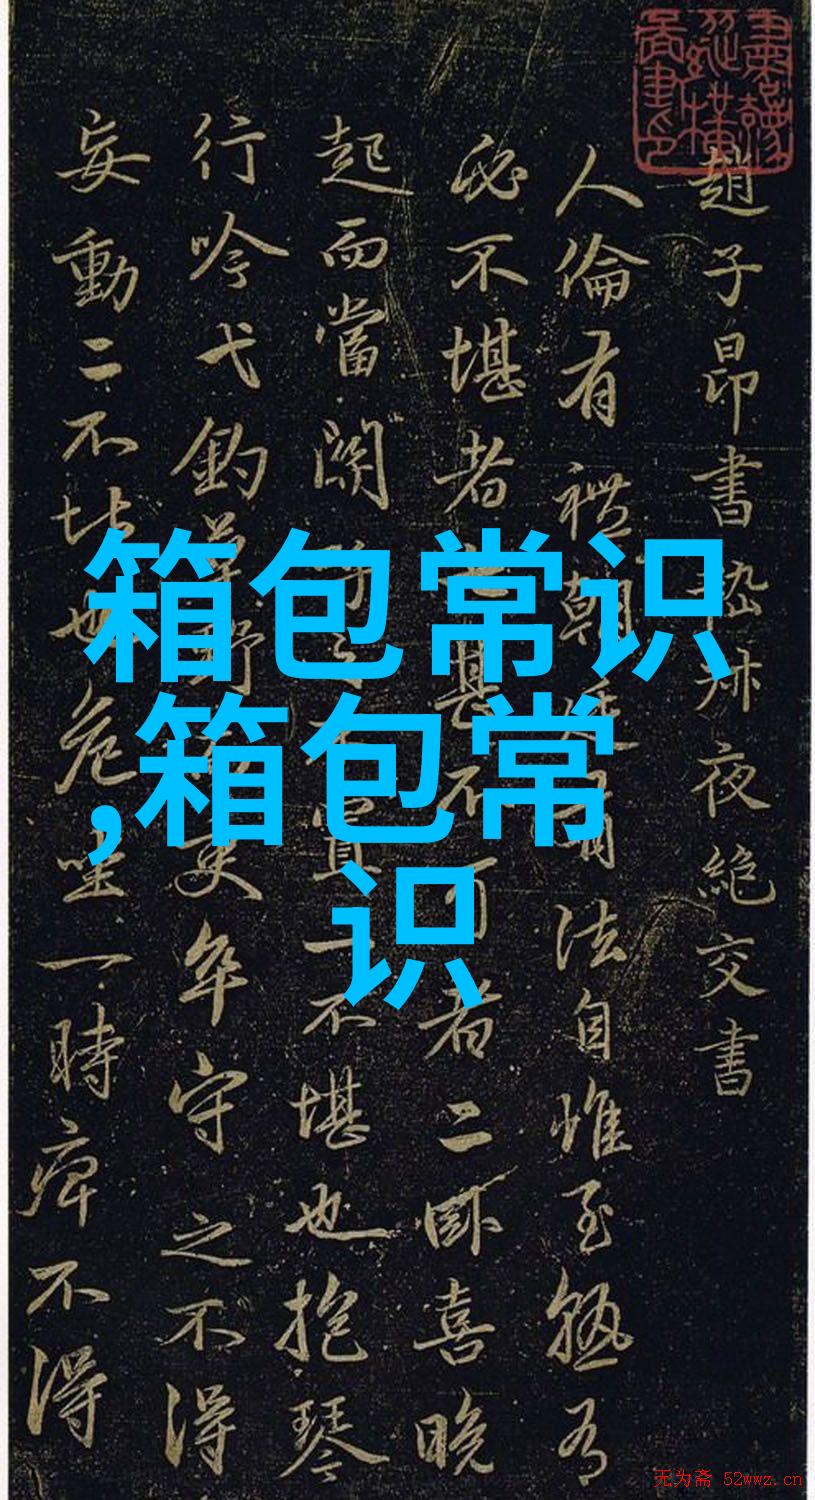 趙子昂書嵇叔夜絕交書
人倫有禮朝廷有法自惟至熟有
必不堪者七甚不可者二臥喜晚
起而當關呼之不置一不堪也抱琴
行吟弋釣草野而吏卒守之不得
妄動二不堪也危坐一時痹不得
箱包常识
,箱包常
识
无为斋 52wwz.cn